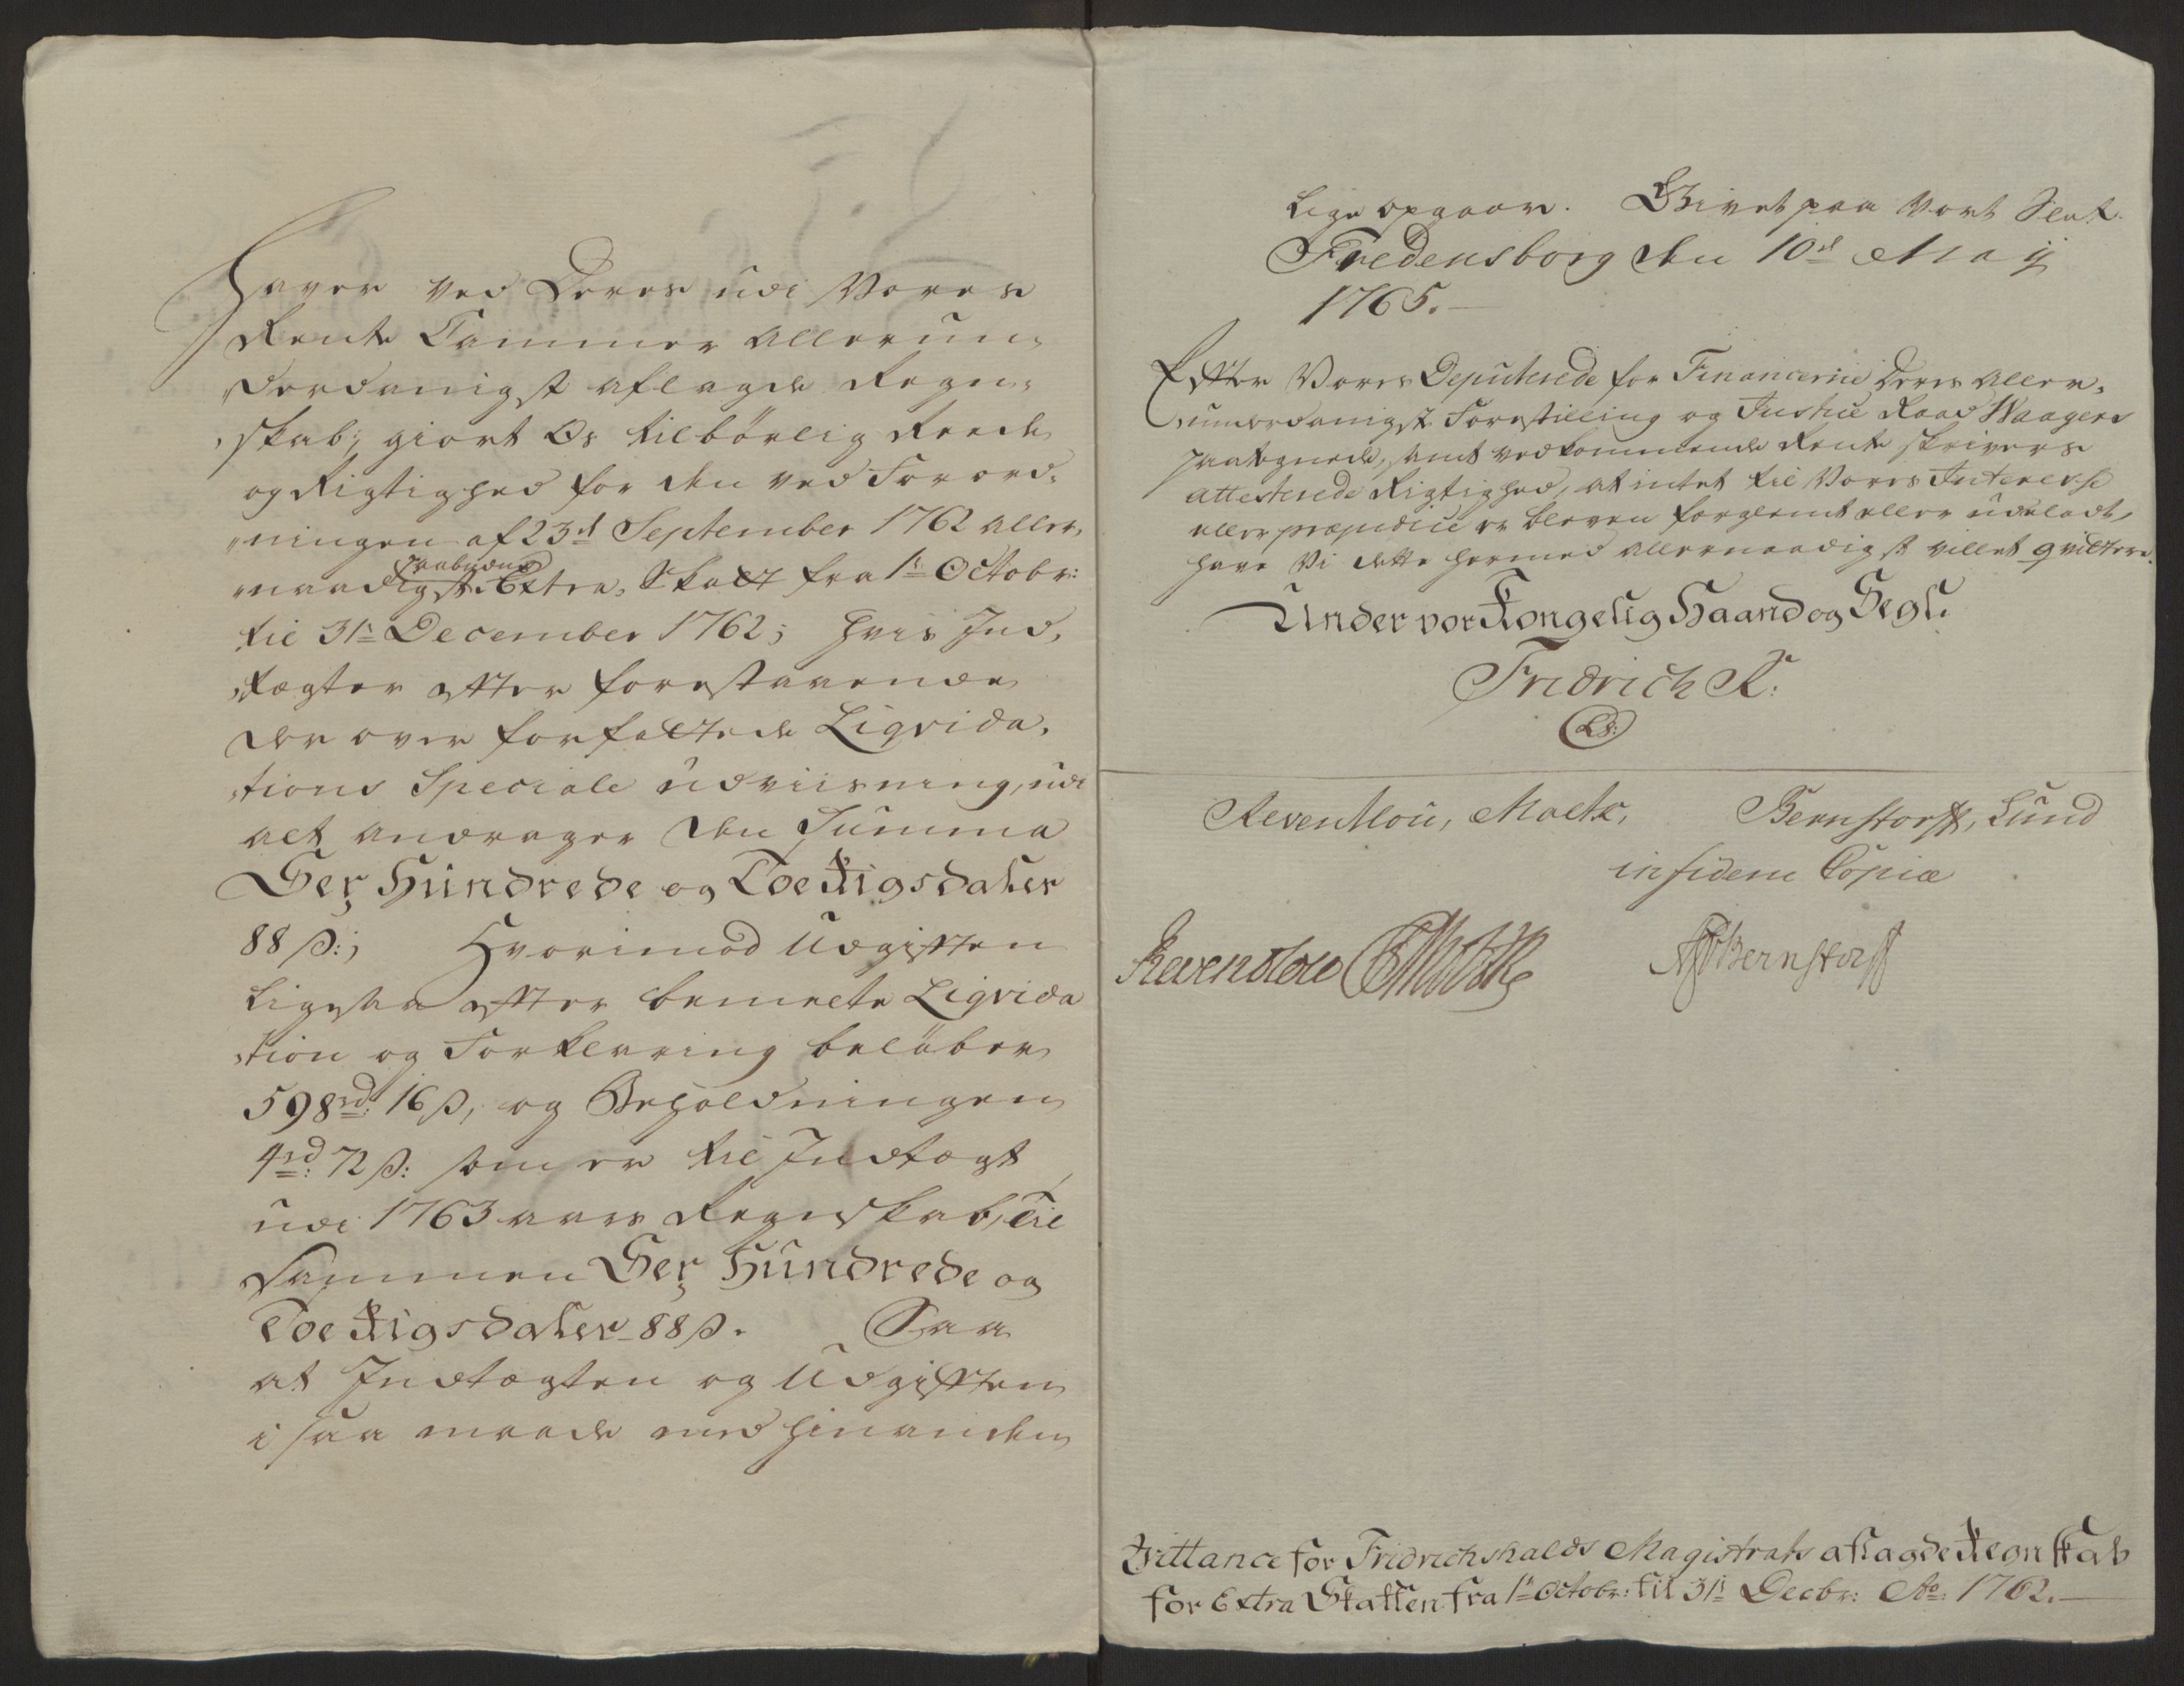 Haver ved Deres udi Vores
Rente Cammer allerun„
„derdanigst aflagde Regn„
„skab; giort Os tilbörlig Reede
og Rigtighed for den ved Forord„
„ningen af 23d September 1762 aller„
paabudne
„naadigst Extra, Skatt fra 1te Octobr:
til 31te December 1762; hvis Ind„
„tægter efter forestaaende
der over forfattede Liqvida„
„tions Speciale udviisning, udi
alt andrager den Summa
Sex Hundrede og Toe Rigsdaler
88 ß:; Hvorimod Udgiften
ligesaa efter bemelte Liqvida
„tion og Forklaring belöber
598rd: 16 ß, og Beholdningen
4rd: 72 ß: som er til Indtægt
udi 1763 aars Regnskab, Til
sammen Sex Hundrede og
Toe Rigsdaler 88 ß. Saa
at Indtægten og Udgiften
i saa maade mod hinanden
lige opgaar. Givet paa Vort Slot
Fredensborg den 10d May
1765.
Efter Vores Deputerede for Financerne Deres aller„
„underdanigst Forestilling og Justice Raad Waagers
paategnede, samt vedkommende Rente skrivers
attesterede Rigtighed, at intet til Vores Interesse
eller præjudice er bleven forglemt eller udeladt,
have Vi dette hermed allernaadigst villet qvittere.
Under vor Kongelig Haand og Segl.
Fridrich R:
LS:
Reventlou, Moltke, Bernstorff, Lund
in fidem Copiæ
Reventlou Moltke Bernstorff
Qvittance for Fridrichshalds Magistrats aflagde Regnskab
for Extra Skatten fra 1te Octobr: til 31te Decbr: Ao: 1762.